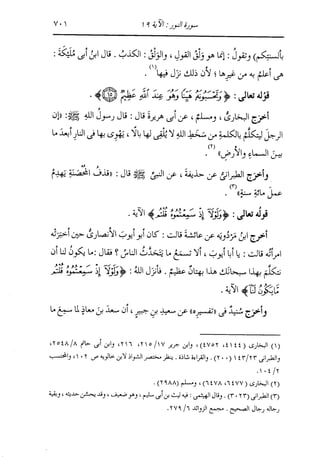 سورة النور: الآية ١٩ ٧٠١
بألسنتكم) وتقول: إنما هو وَلْقُ القولِ، والوَلْقُ: الكذبُ. قال ابنُ أبى مُلَيْكَةَ:
هى أعلمُ به من غيرِها؛ لأن ذلك نزَل فيها(١).
قولُه تعالى: ﴿وَتَحْسَبُونَهُ هَيِّنًا وَهُوَ عِندَ اللَّهِ عَظِيمٌ ١٥﴾.
أخرَج البخارىُّ، ومسلمٌ، عن أبى هريرةَ قال: قال رسولُ اللهِ ﷺ: «إن
الرجلَ لَيتكلَّمُ بالكلمةِ من سَخَطِ اللهِ لا يُلقِى لها بالًا، يَهْوِى بها فى النارِ أبعدَ ما
بينَ السماءِ والأرضِ»(٢).
وأخرَج الطبرانىُّ عن حذيفةَ، عن النبىِّ ﷺ قال: «قذفُ المُحْصَنةِ يَهدِمُ
عملَ مائةِ سنةٍ»(٣).
قولُه تعالى: ﴿وَلَوْلَا إِذْ سَمِعْتُمُوهُ قُلْتُم﴾ الآية.
أخرَج ابنُ مَرْدُويَه عن عائشةَ قالت: كان أبو أيوبَ الأنصارىُّ حينَ أخبَرَتْه
امرأتُه قالت: يا أبا أيوبَ، ألا تسمعُ ما يتحدَّثُ الناسُ؟ فقال: ما يكونُ لنا أن
نتكلَّمَ بهذا سبحانَك هذا بهتانٌ عظيمٌ. فأنزَل اللهُ: ﴿وَلَوْلَا إِذْ سَمِعْتُمُوهُ قُلْتُم
مَّا يَكُونُ لَنَا﴾ الآية.
وأخرَج سُنَيدٌ فى «تفسيرِه» عن سعيدِ بنِ جبيرٍ، أن سعدَ بنَ معاذٍ لما سمِع ما
(١) البخارى (٤١٤٤، ٤٧٥٢)، وابن جرير ١٧/ ٢١٥، ٢١٦، وابن أبى حاتم ٨/ ٢٥٤٨،
والطبرانى ٢٣/ ١٤٣ (٢٠٠). والقراءة شاذة. ينظر مختصر الشواذ لابن خالويه ص ١٠٢، والمحتسب
٢/ ١٠٤.
(٢) البخارى (٦٤٧٧، ٦٤٧٨)، ومسلم (٢٩٨٨).
(٣) الطبرانى (٣٠٢٣). وقال الهيثمى: فيه ليث بن أبى سليم، وهو ضعيف، وقد يحسن حديثه، وبقية
رجاله رجال الصحيح. مجمع الزوائد ٦/ ٢٧٩.